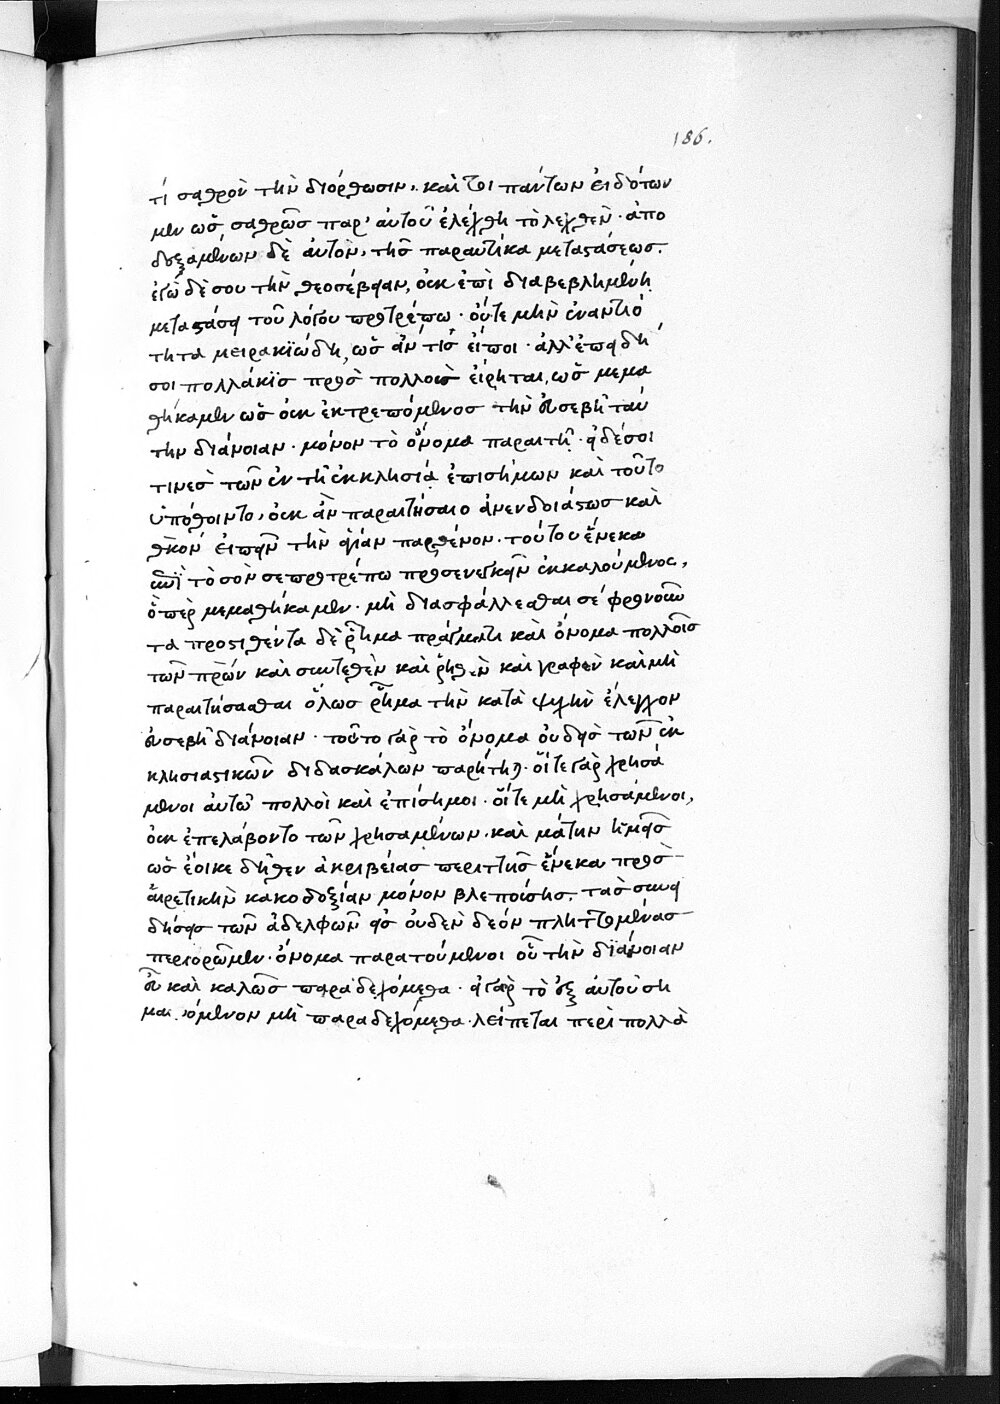 186.
τί σαθρὸν τὴν διόρθωσιν, καί τοι πάντων εἰδότων
μὲν ὡς σαθρῶς παρ' αὐτοῦ ἐλέχθη τὸ λεχθὲν· ἀπο
δεξαμένων δὲ αὐτὸν, τῆς παραυτίκα μεταστάσεως.
ἐγὼ δέ σου τὴν θεοσέβειαν, οὐκ ἐπὶ διαβεβλημένη
μεταστάσει τοῦ λόγου προτρέπω· οὔτε μὴν ἐναντιό
τητα μειρακιώδη, ὡς ἄν τις εἴποι· ἀλλ' ἐπειδή
σοι πολλάκις πρὸς πολλοὺς εἴρηται, ὡς μεμα
θήκαμεν ὡς οὐκ ἐκτρεπόμενος τὴν εὐσεβῆ ταύ
την διάνοιαν· μόνον τὸ ὄνομα παραιτῇ· εἰ δέ σοι
τινες τῶν ἐν τῇ ἐκκλησίᾳ ἐπισήμων καὶ τοῦτο
ὑπόθοιντο, οὐκ ἂν παραιτήσαιο ἀνενδοιάστως καὶ
θκον εἰπεῖν τὴν ἁγίαν παρθένον· τούτου ἕνεκα
τὸ σὸν σε προτρέπω προσενεγκεῖν ἐκκαλούμενος,
ὅπερ μεμαθήκαμεν· μὴ διασφάλλεσθαι σε φρονοῦν
τα προστιθέντα δὲ ῥῆμα πράγματι καὶ ὄνομα πολλοῖς
τῶν πρῶν καὶ συντεθὲν καὶ ῥηθὲν καὶ γραφὲν καὶ μὴ
παραιτήσασθαι ὅλως ῥῆμα τὴν κατὰ ψυχὴν ἐλέγχον
εὐσεβῆ διάνοιαν· τοῦτο γὰρ τὸ ὄνομα οὐδεὶς τῶν ἐκ
κλησιαστικῶν διδασκάλων παρῄτηται· οἵ τε γὰρ χρησά
μενοι αὐτῷ πολλοὶ καὶ ἐπίσημοι· οἵ τε μὴ χρησάμενοι,
οὐκ ἐπελάβοντο τῶν χρησαμένων. καὶ μάτην ἡμεῖς
ὡς ἔοικε δῆθεν ἀκριβείας περιττῆς ἕνεκα πρὸς
αἱρετικὴν κακοδοξίαν μόνον βλεπούσης, τὰς συνει
δήσεις τῶν ἀδελφῶν εἰς οὐδὲν δέον πληττομένας
περιορῶμεν· ὄνομα παρατούμενοι οὗ τὴν διάνοιαν
εὖ καὶ καλῶς παραδεχόμεθα· εἰ γὰρ τὸ ἐξ αὐτοῦ ση
μαινόμενον μὴ παραδεχόμεθα· λείπεται περὶ πολλὰ